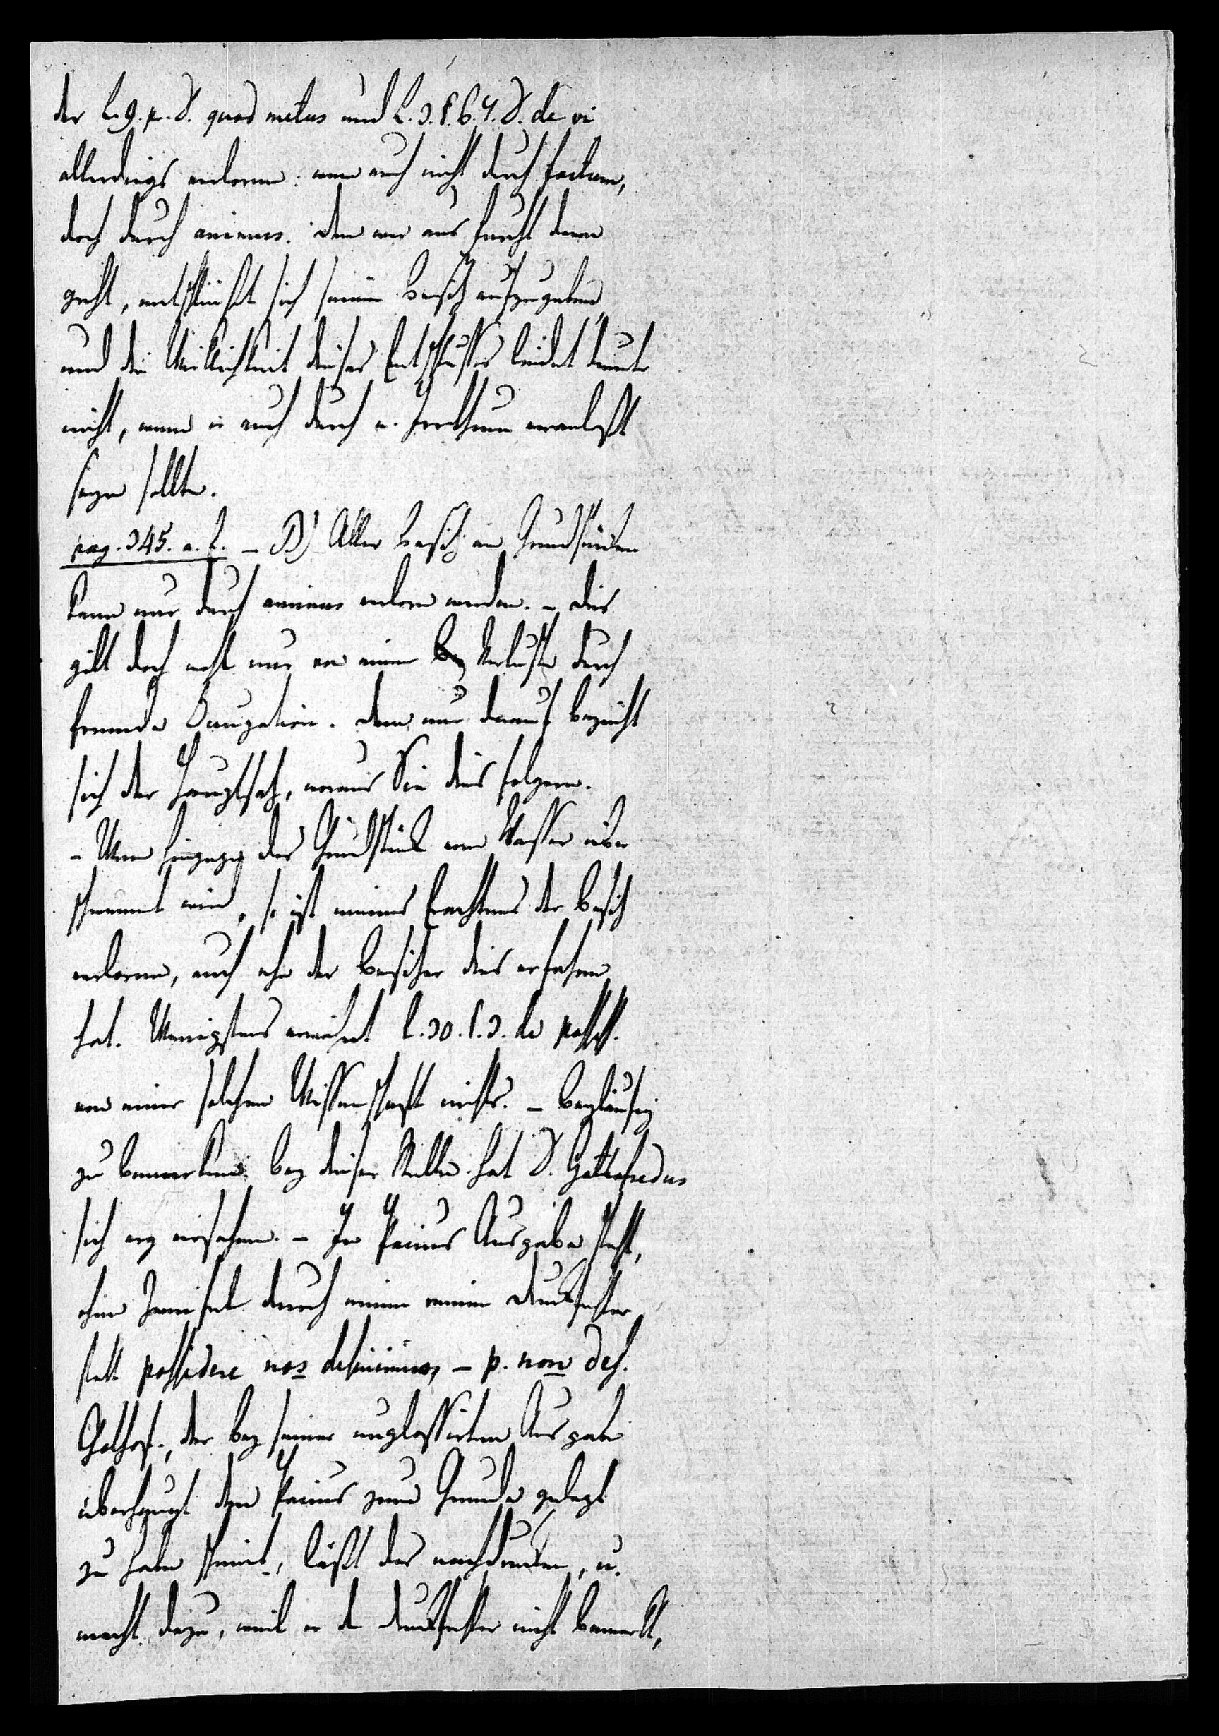 der L. 9. pr. D. quod metus und L. 3. §. 6. 7. D. de vi
allerdings verloren: wenn auch nicht durch factum,
doch durch animus. Denn wer aus Furcht davon
geht, entschließt sich seinen Besitz aufzugeben,
und die Wirklichkeit dieses Entschlusses leidet darunter
nicht, wenn er auch durch e. Irrthum veranlaßt
seyn sollte.
pag. 345. a. E. – B) Aller Besitz an Grundstücken
kann nur durch animus verloren werden. – Dies
gilt doch wohl nur von einem Verluste durch
fremde Occupation. Denn nur darauf bezieht
sich der Hauptsatz, woraus Sie dies folgern.
– Wenn hingegen das Grundstück vom Wasser über
schwemmt wird, so ist meines Erachtens der Besitz
verloren, auch ehe der Besitzer dies erfahren
hat. Wenigstens erwähnt l. 30. §. 3. de possess.
von einer solchen Wissenschaft nichts. – Beyläufig
zu bemerken: bey dieser Stelle hat D. Gottofredus
sich arg versehen. – In Pacius Ausgabe steht,
ohne Zweifel durch einen reinen Druckfehler
statt possidere nos desinimus, – p. non des.
Gothof., der bey seiner unglossirten Ausgabe
überhaupt den Pacius zum Grunde gelegt
zu haben scheint, läßt das nachdrucken, u.
macht dazu, weil er d. Druckfehler nicht bemerkt,